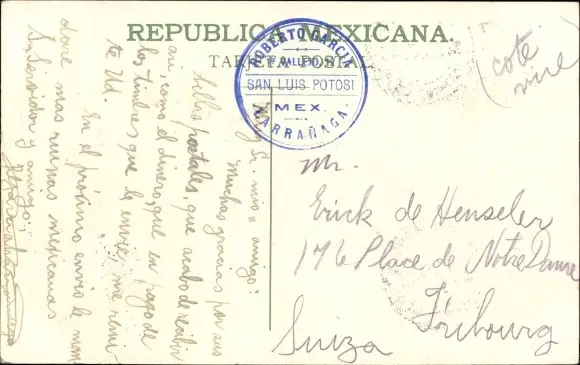 REPUBLICA MEXICANA.
TARJETA POSTAL.
ROBERTO GARCIA
SAN LUIS POTOSI
MEX.
LARRAÑAGA.
cote
vue
Muy Sr. mio y amigo:
Muchas gracias por sus
bellas postales, que acabo de recibir
así, como el dinero, que en pago de
los timbres que le envie, me remi-
te Ud.
En el próximo envio le man-
daré mas ruinas mexicanas
Su Servidor y amigo;
Mr.
Erick de Henseler
176 Place de Notre Dame
Fribourg
Suiza